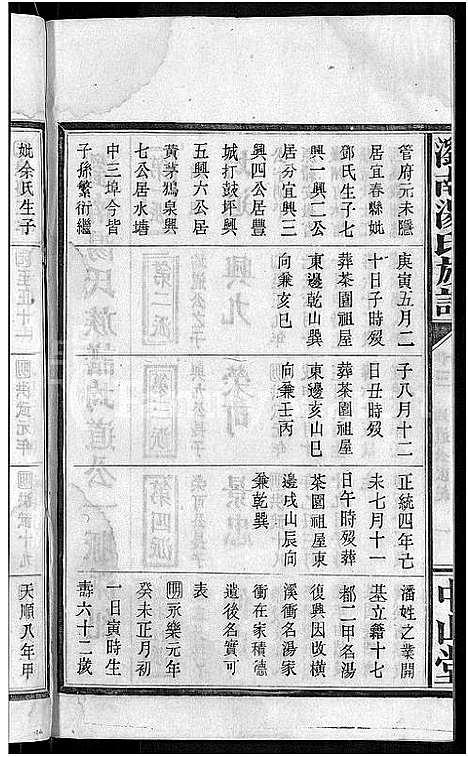 瀏南湯氏族譜
中山堂
管府元未隱
居宜春縣妣
鄧氏生子七
興一興二公
居分宜興三
興四公居豐
城打鼓坪興
五興六公居
黃茅鴉泉興
七公居水塘
中三埠今皆
子孫繁衍繼
庚寅五月二
十日子時歿
葬茶園祖屋
東邊乾山巽
向兼亥巳
子八月十二
日丑時歿
葬茶園祖屋
東邊亥山巳
向兼壬丙
正統四年亡
未七月十一
日午時歿葬
茶園祖屋東
邊戌山辰向
兼乾巽
潘姓之業開
基立籍十七
都二甲名湯
復興因改橫
溪衝名湯家
衝在家積德
遺後名實可
表
永樂元年
癸未正月初
一日寅時生
壽六十二歲
妣余氏生子
至正十二
洪武元年
洪武十九
天順八年甲